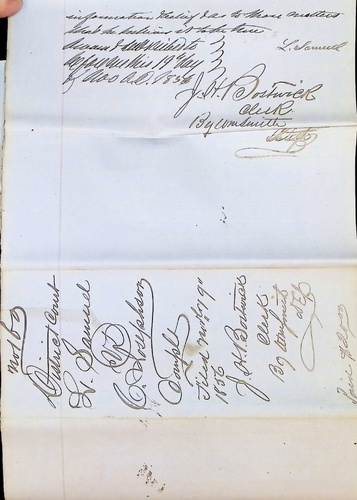 information & belief & as to those matters
that he believes it to be true
Sworn & subscribed to
before me this 19 May
A.D. 1856
L. Samuel
J. H. Bostwick
Clerk
By Wm Smith
District Court
L. Samuel
vs
C. Josephson
Compl
Filed
1856
J. H. Bostwick
Clerk
By Wm Smith